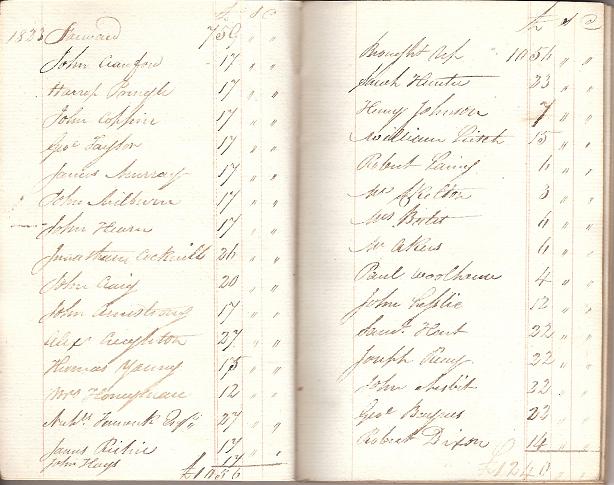 £ s d
1823 Forward 759 " "
John Crawford 17 " "
Harrop Pringle 17 " "
John Coppin 17 " "
Geo Taylor 17 " "
James Murray 17 " "
John Milburn 17 " "
John Hearn 17 " "
Jonathan 26 " "
John Craig 20 " "
John Armstrong 17 " "
Alexr Creighton 27 " "
Thomas Young 15 " "
Mrs Honeyman 12 " "
Esqr 27 " "
James Ritchie 17 " "
John Hays 17
£1056
£ s d
Brought Up 1056 " "
Sarah Hunter 23 " "
Henry Johnson 7 " "
William 15 " "
Robert Laing 6 " "
Mr Skelton 3 " "
Mrs 6 " "
Mr Akers 6 " "
Paul Woolhouse 4 " "
John Leslie 12 " "
Saml Hunt 22 " "
Joseph 22 " "
John Nesbit 22 " "
Geo 22 " "
Robert Dixon 14 " "
£124